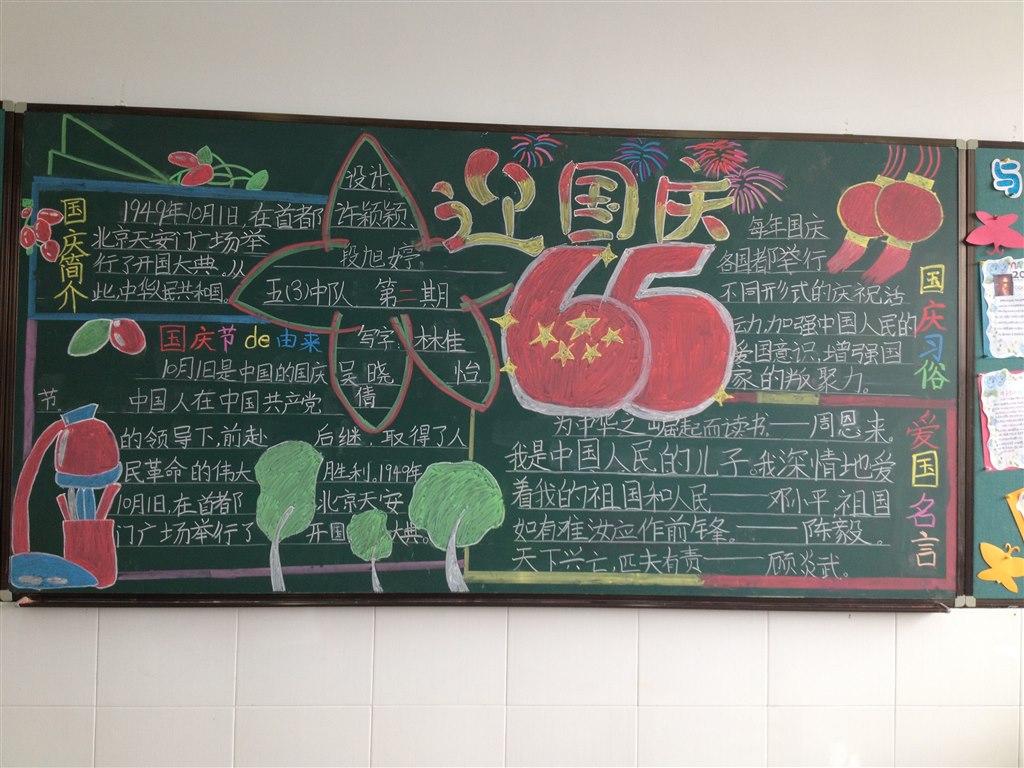 迎国庆
65
国庆简介
1949年10月1日,在首都
北京天安门广场举
行了开国大典。从
此,中华民共和国。
设计
许颖颖
段旭婷。
五(3)中队 第二期
写字 林佳怡
吴晓倩
国庆节de由来
10月1日是中国的国庆节
中国人在中国共产党
的领导下,前赴 后继,取得了人
民革命的伟大 胜利。1949年
10月1日,在首都 北京天安
门广场举行了 开国大典。
国庆习俗
每年国庆
各国都举行
不同形式的庆祝活
动,加强中国人民的
爱国意识,增强国
家的叛聚力。
爱国名言
为中华之崛起而读书。——周恩来。
我是中国人民的儿子。我深情地爱
着我的祖国和人民——邓小平,祖国
如有难汝应作前锋。——陈毅。
天下兴亡,匹夫有责——顾炎武。
与